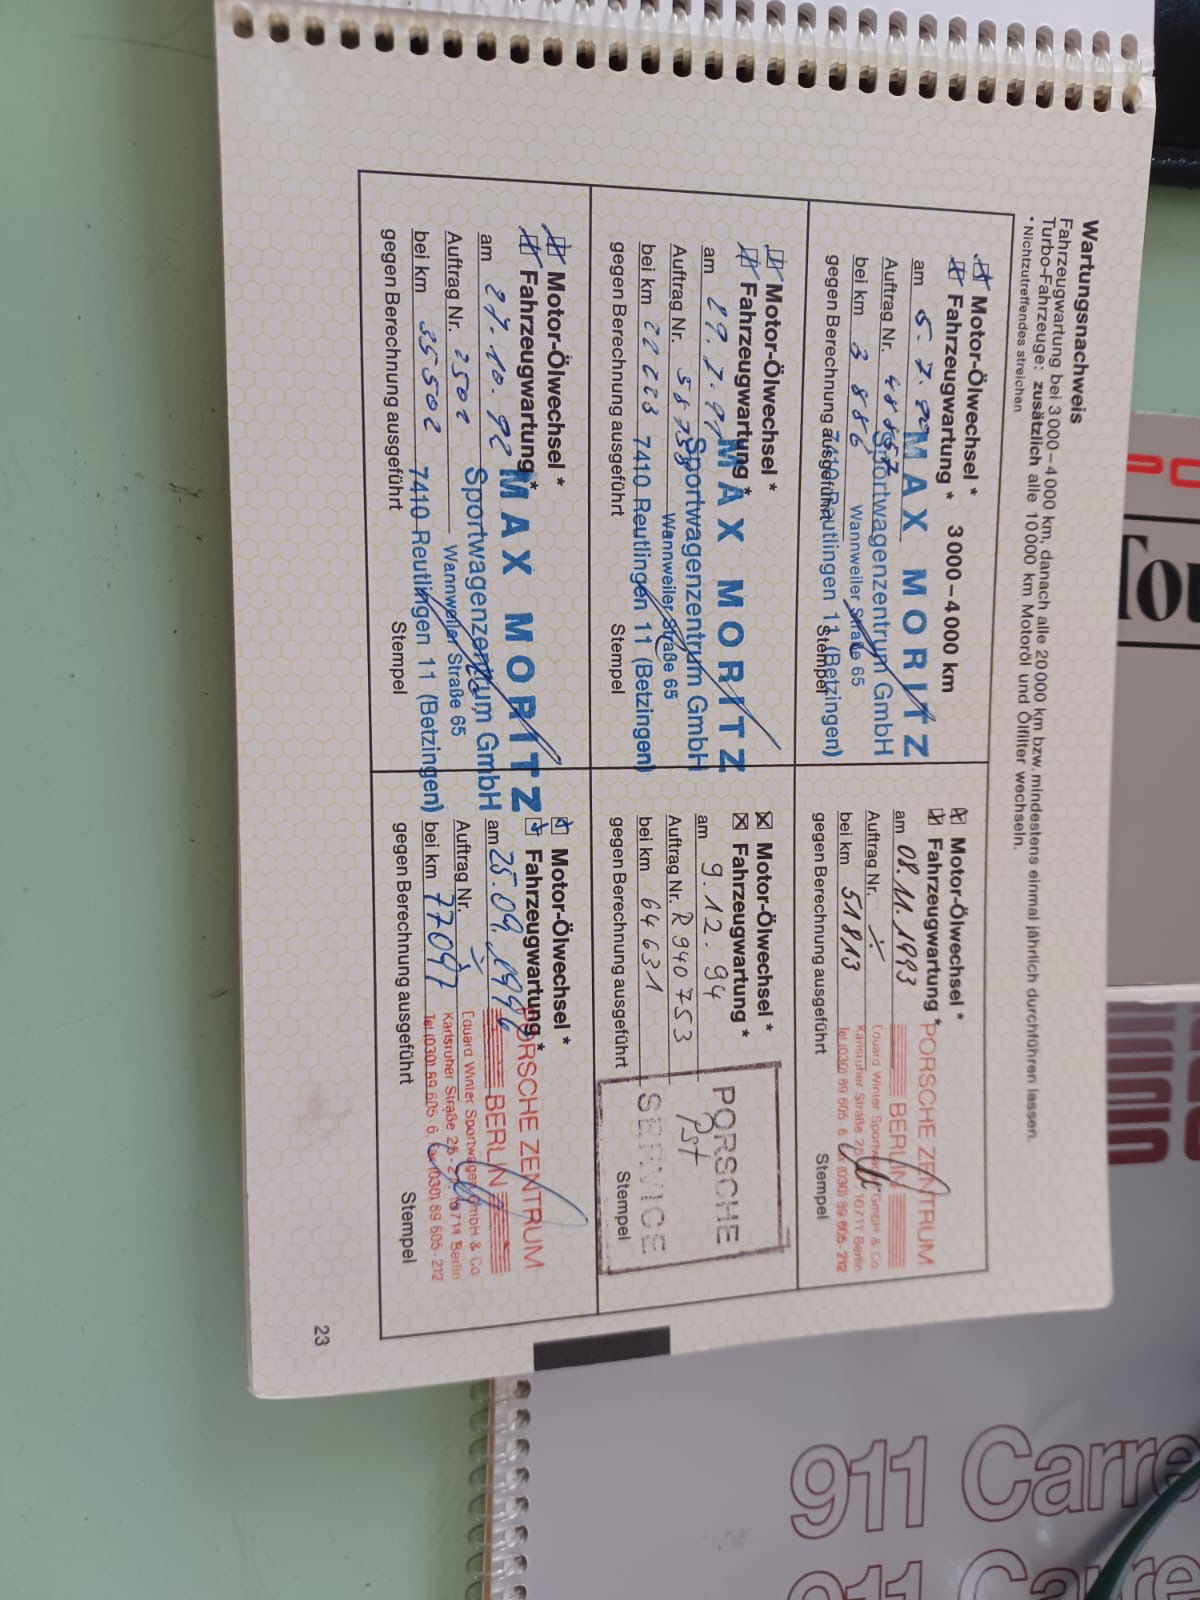 Wartungsnachweis
Fahrzeugwartung bei 3000–4000 km, danach alle 20000 km bzw. mindestens einmal jährlich durchführen lassen.
Turbo-Fahrzeuge: zusätzlich alle 10000 km Motoröl und Ölfilter wechseln.
* Nichtzutreffendes streichen
Motor-Ölwechsel *
Fahrzeugwartung * 3000–4000 km
am 5. 7. 90
Auftrag Nr.
bei km 3 886
gegen Berechnung ausgeführt
Stempel
MAX MORITZ
Sportwagenzentrum GmbH
Wannweiler Straße 65
7410 Reutlingen 11 (Betzingen)
Motor-Ölwechsel *
Fahrzeugwartung *
am 29. 7. 91
Auftrag Nr.
bei km 22 223
gegen Berechnung ausgeführt
Stempel
MAX MORITZ
Sportwagenzentrum GmbH
Wannweiler Straße 65
7410 Reutlingen 11 (Betzingen)
Motor-Ölwechsel *
Fahrzeugwartung *
am 27. 10. 92
Auftrag Nr. 2502
bei km 35502
gegen Berechnung ausgeführt
Stempel
MAX MORITZ
Sportwagenzentrum GmbH
Wannweiler Straße 65
7410 Reutlingen 11 (Betzingen)
Motor-Ölwechsel *
Fahrzeugwartung *
am 08.11.1993
Auftrag Nr.
bei km 51813
gegen Berechnung ausgeführt
Stempel
PORSCHE ZENTRUM
BERLIN
Eduard Winter Sportwagen GmbH & Co
Karlsruher Straße 10711 Berlin
Tel (030) 89 605-6, Fax (030) 89 605-212
Motor-Ölwechsel *
Fahrzeugwartung *
am 9.12.94
Auftrag Nr. R940753
bei km 64631
gegen Berechnung ausgeführt
Stempel
PORSCHE
SERVICE
Motor-Ölwechsel *
Fahrzeugwartung *
am 25.09.1996
Auftrag Nr.
bei km 77097
gegen Berechnung ausgeführt
Stempel
PORSCHE ZENTRUM
BERLIN
Eduard Winter Sportwagen GmbH & Co
Karlsruher Straße 10711 Berlin
Tel (030) 89 605-6, Fax (030) 89 605-212
23
911 Carre
911 Carre
PO
Tou